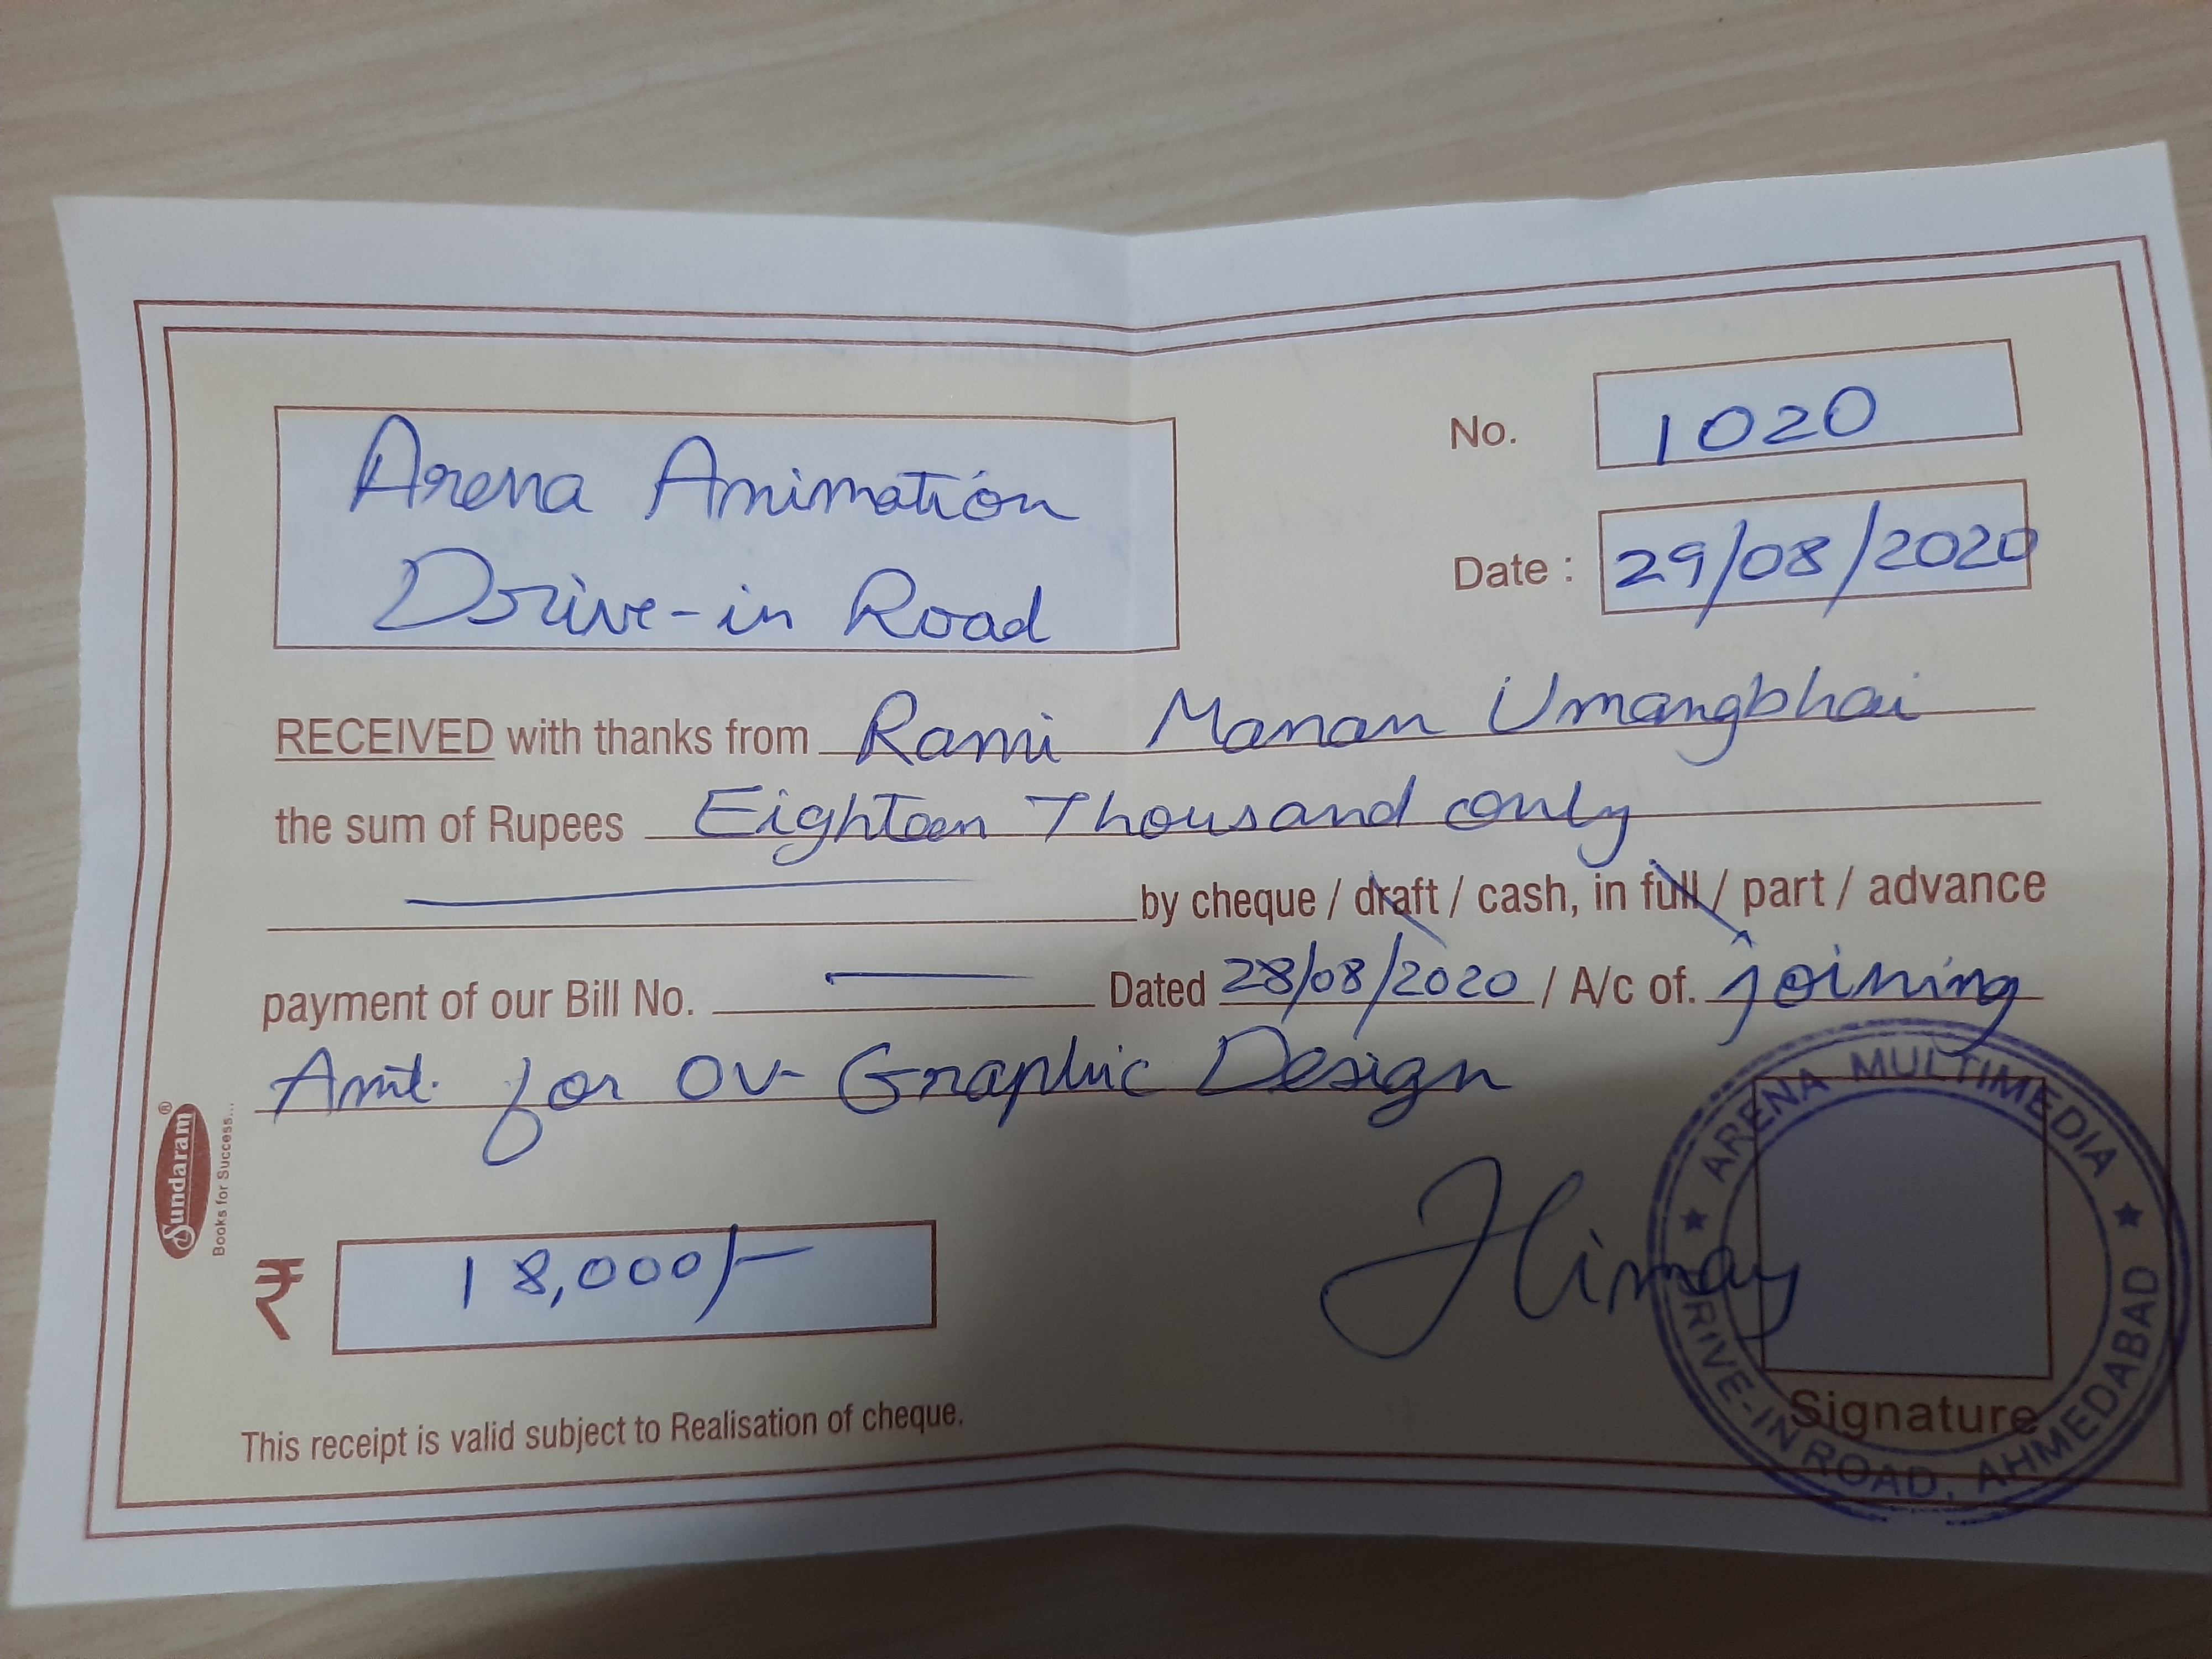 Arena Animation
Drive-in Road
No. 1020
Date : 29/08/2020
RECEIVED with thanks from Rami Manan Umangbhai
the sum of Rupees Eighteen Thousand only
by cheque / draft / cash, in full / part / advance
payment of our Bill No. Dated 28/08/2020 / A/c of. joining
Amt. for OV- Graphic Design
Sundaram®
Books for Success...
₹ 18,000/-
Himay
ARENA MULTIMEDIA
DRIVE-IN ROAD, AHMEDABAD
Signature
This receipt is valid subject to Realisation of cheque.